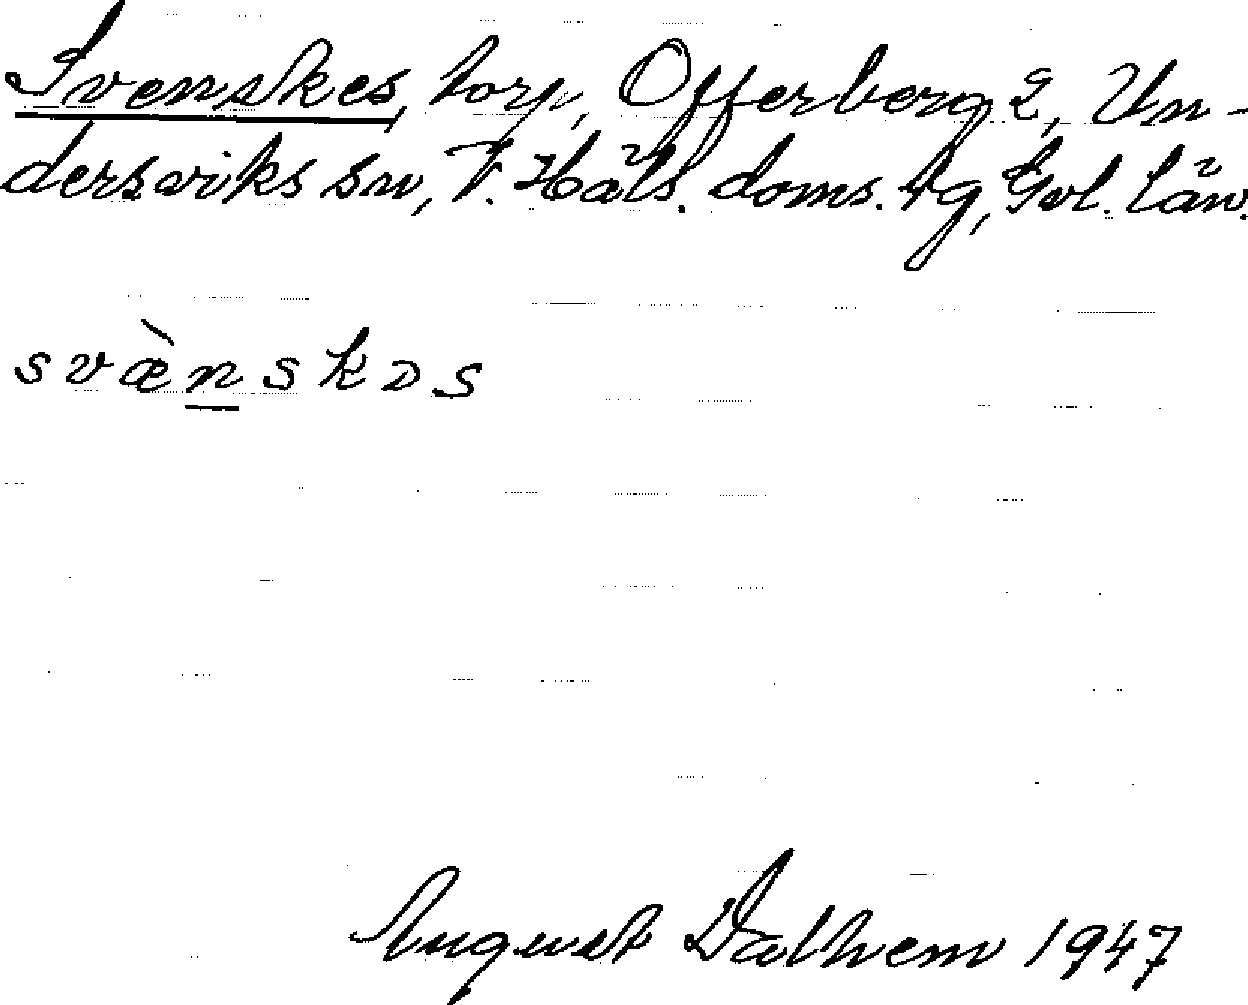 Svenskes, torp, Offerberg 2, Un-
dersviks sn, V. Häls. doms. tg, Gvl. län.
svæ̀nskəs
August Dalhem 1947